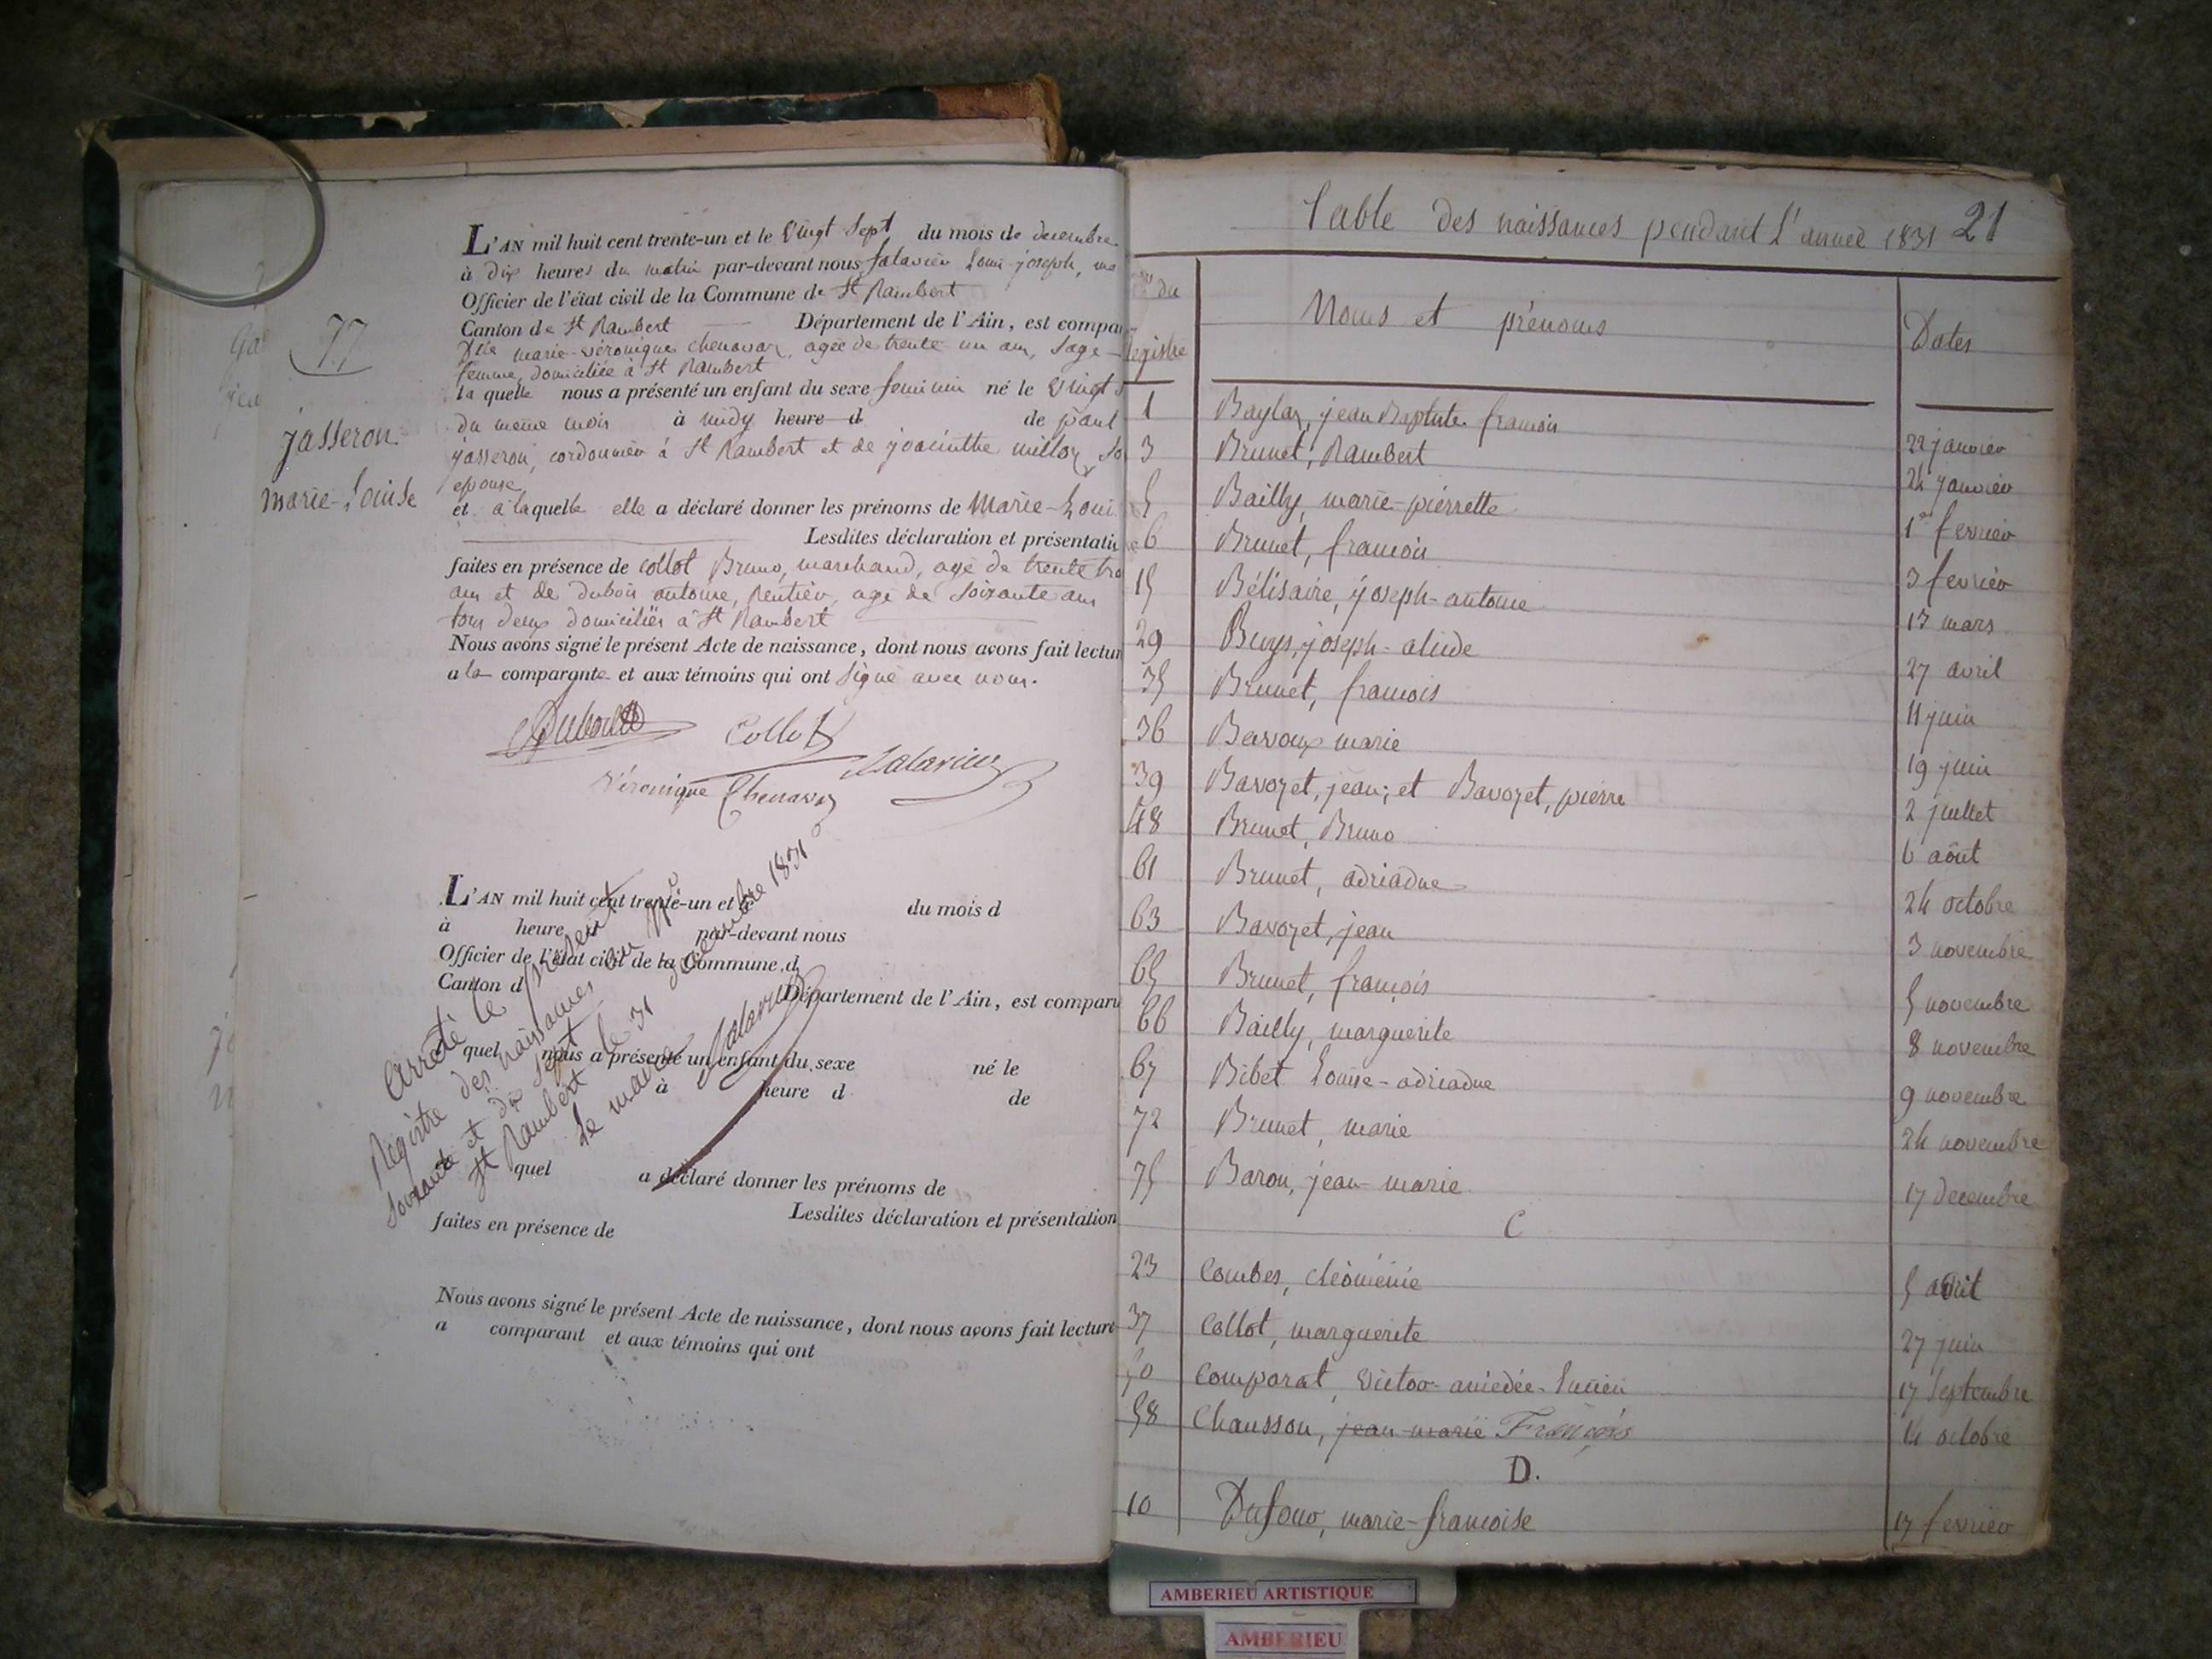 77
jasseron
marie-Louise
L'AN mil huit cent trente-un et le Vingt Sept du mois de decembre
à dix heures du matin par-devant nous Salavin Louis-joseph,
Officier de l'état civil de la Commune de St Rambert
Canton de St Rambert Département de l'Ain, est compa
Dlle marie-véronique chenavaz, agée de trente un ans, Sage-
femme, domiciliée à St Rambert
la quelle nous a présenté un enfant du sexe feminin né le Vingt
du meme mois à midy heure d de paul
jasseron, cordonnier à St Rambert et de jacinthe milloz So
epouse
et à laquelle elle a déclaré donner les prénoms de Marie-Loui
Lesdites déclaration et présentatio
faites en présence de Collot Bruno, marchand, agé de trente tro
ans et de Dubois antoine, Rentier, agé de Soixante ans
tous deux domiciliés à St Rambert
Nous avons signé le présent Acte de naissance, dont nous avons fait lectur
a la comparante et aux témoins qui ont Signé avec nous.
Dubois Collot
Salavin
Véronique Chenavaz
L'AN mil huit cent trente-un et le du mois d
à heure par-devant nous
Officier de l'état civil de la Commune d
Canton d Département de l'Ain, est comparu
quel nous a présenté un enfant du sexe né le
à heure d de
quel a déclaré donner les prénoms de
Lesdites déclaration et présentation
faites en présence de
Nous avons signé le présent Acte de naissance, dont nous avons fait lecture
a comparant et aux témoins qui ont
Arreté le présent
Registre des naissances au
Soixante et dix Sept
St Rambert le 31 decembre 1831
Le maire
Salavin
Table des naissances pendant L'année 1831 21
du
Registre Noms et prénoms Dates
1 Baylaz, jean Baptiste françois 22 janvier
3 Brunet, Rambert 24 janvier
5 Bailly, marie-pierrette 1er fevrier
6 Brunet, françois 3 fevrier
15 Bélisaire, joseph-antoine 13 mars
29 Buys, joseph-alcide 27 avril
35 Brunet, françois 11 juin
36 Bavoux marie 19 juin
39 Bavozet, jean; et Bavozet, pierre 2 juillet
48 Brunet, Bruno 6 août
61 Brunet, adriadne 24 octobre
63 Bavozet, jean 3 novembre
65 Brunet, françois 5 novembre
66 Bailly, marguerite 8 novembre
67 Bibet Louise-adriadne 9 novembre
72 Brunet, marie 24 novembre
75 Baron, jean-marie 17 decembre
C
23 Combes, cléoménie 5 avril
37 Collot, marguerite 27 juin
50 Comparat, Victor-amédée-Lucien 17 Septembre
58 Chausson, jean-marie François 14 octobre
D.
10 Dufour, marie-françoise 17 fevrier
AMBERIEU ARTISTIQUE
AMBERIEU